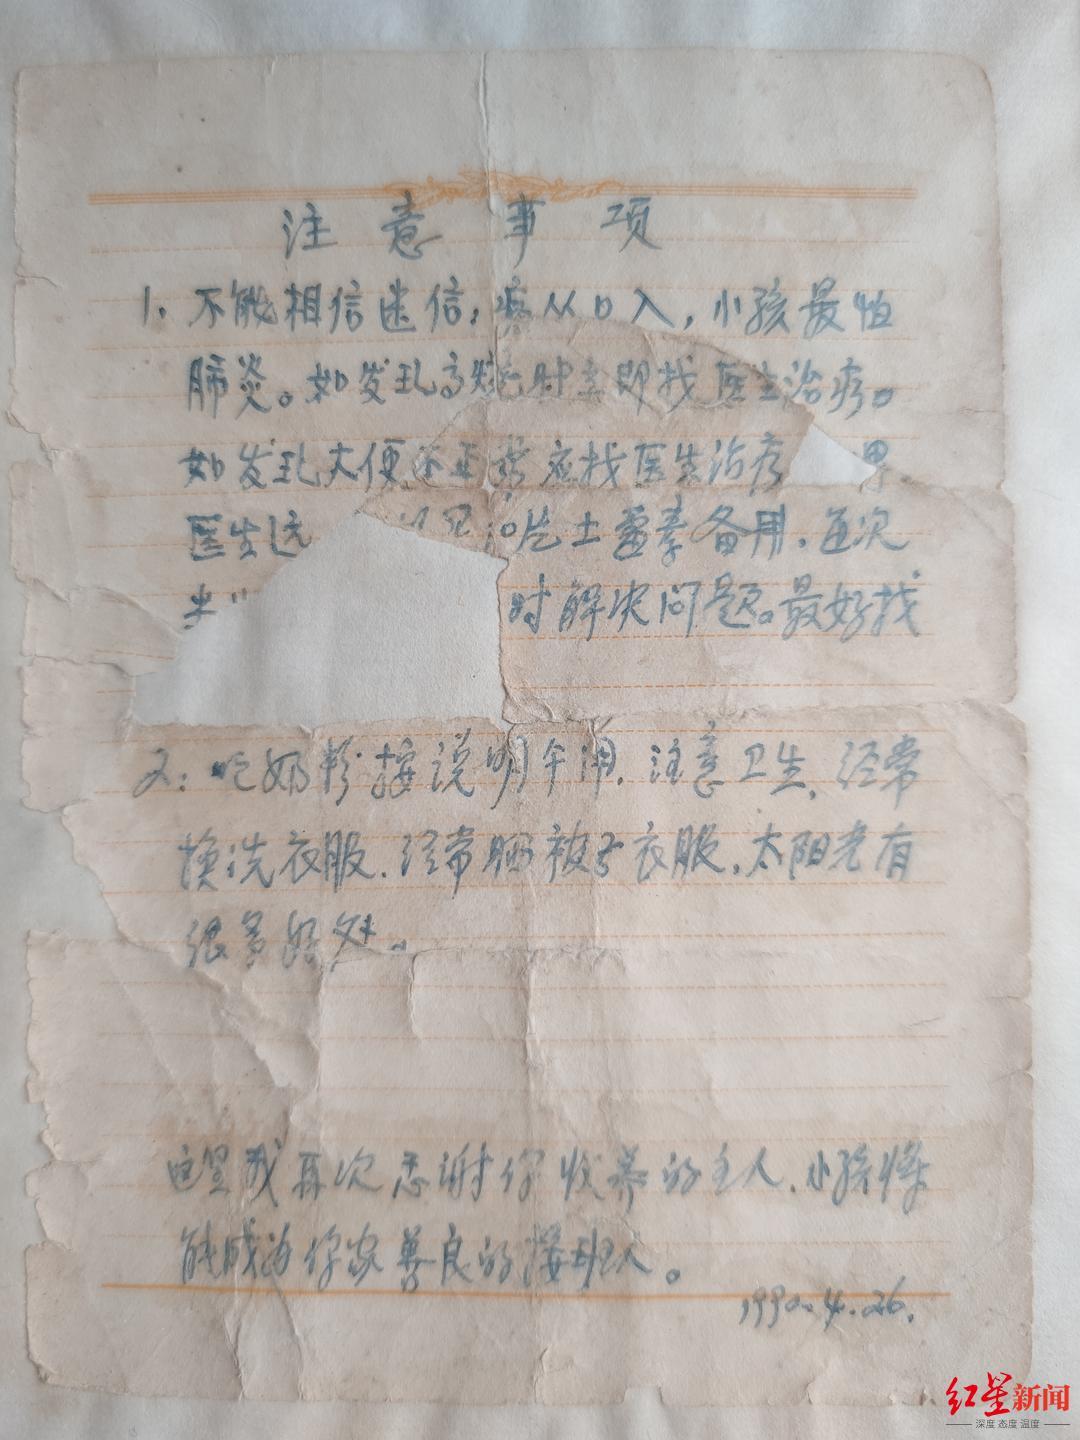 注意事项
1. 不能相信迷信，病从口入，小孩最怕
肺炎。如发现高烧时立即找医生治疗。
如发现大便不正常应找医生治疗
医生远 片土霉素备用，每次
时解决问题。最好找
2：吃奶粉按说明牛用，注意卫生，经常
换洗衣服，经常晒被子衣服，太阳光有
很多好处。
这里我再次感谢你收养的主人，小孩将
能成为你家善良的接班人。
1990.4.26.
红星新闻
深度 态度 温度